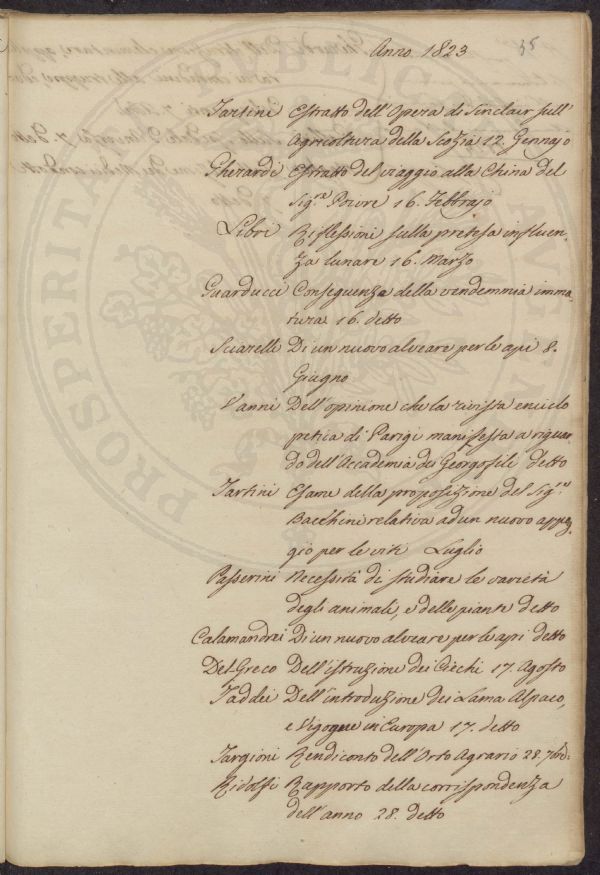 Anno 1823
35
Tartini Estratto dell'Opera di Sinclair sull'
Agricoltura della Scozia 12. Gennajo
Gherardi Estratto del viaggio alla China del
Sig.re Poivre 16. Febbrajo
Libri Riflessioni sulla pretesa influen-
za lunare 16. Marzo
Guarducci Conseguenza della vendemmia imma-
tura 16. detto
Sciarelli Di un nuovo alveare per le api 8.
Giugno
Vanni Dell'opinione che la rivista enciclo
petica di Parigi manifesta a riguar
do dell'Accademia dei Georgofili detto
Tartini Esame della proposizione del Sig.re
Bacchini relativa ad un nuovo appog
gio per le viti Luglio
Passerini Necessità di studiare le varietà
degli animali, e delle piante detto
Calamandrei Di un nuovo alveare per le api detto
Del Greco Dell'istruzione dei Ciechi 17. Agosto
Taddei Dell'introduzione dei Lama Alpaco,
e Vigogne in Europa 17. detto
Targioni Rendiconto dell'Orto Agrario 28. 7bre
Ridolfi Rapporto della corrispondenza
dell'anno 28. detto
PROSPERITATI PUBLICAE AUGENDAE